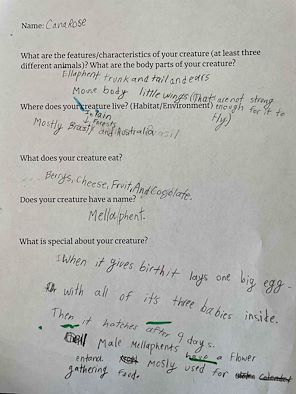 Name: CanaRose
What are the features/characteristics of your creature (at least three
different animals)? What are the body parts of your creature?
Ellaphent trunk and tail and ears
Mouse body little wings (That's are not strong
enough for it to
fly)
Where does your creature live? (Habitat/Environment)
Rain
Forests
Mostly Brazil and Australia
What does your creature eat?
Berrys, Cheese, Fruit, And Coggolate.
Does your creature have a name?
Mellaphent.
What is special about your creature?
When it gives birth it lays one big egg
with all of it's three babies inside.
Then it hatches after 9 days.
Male Mellaphents have a flower
entand. mosly used for
gathering food.